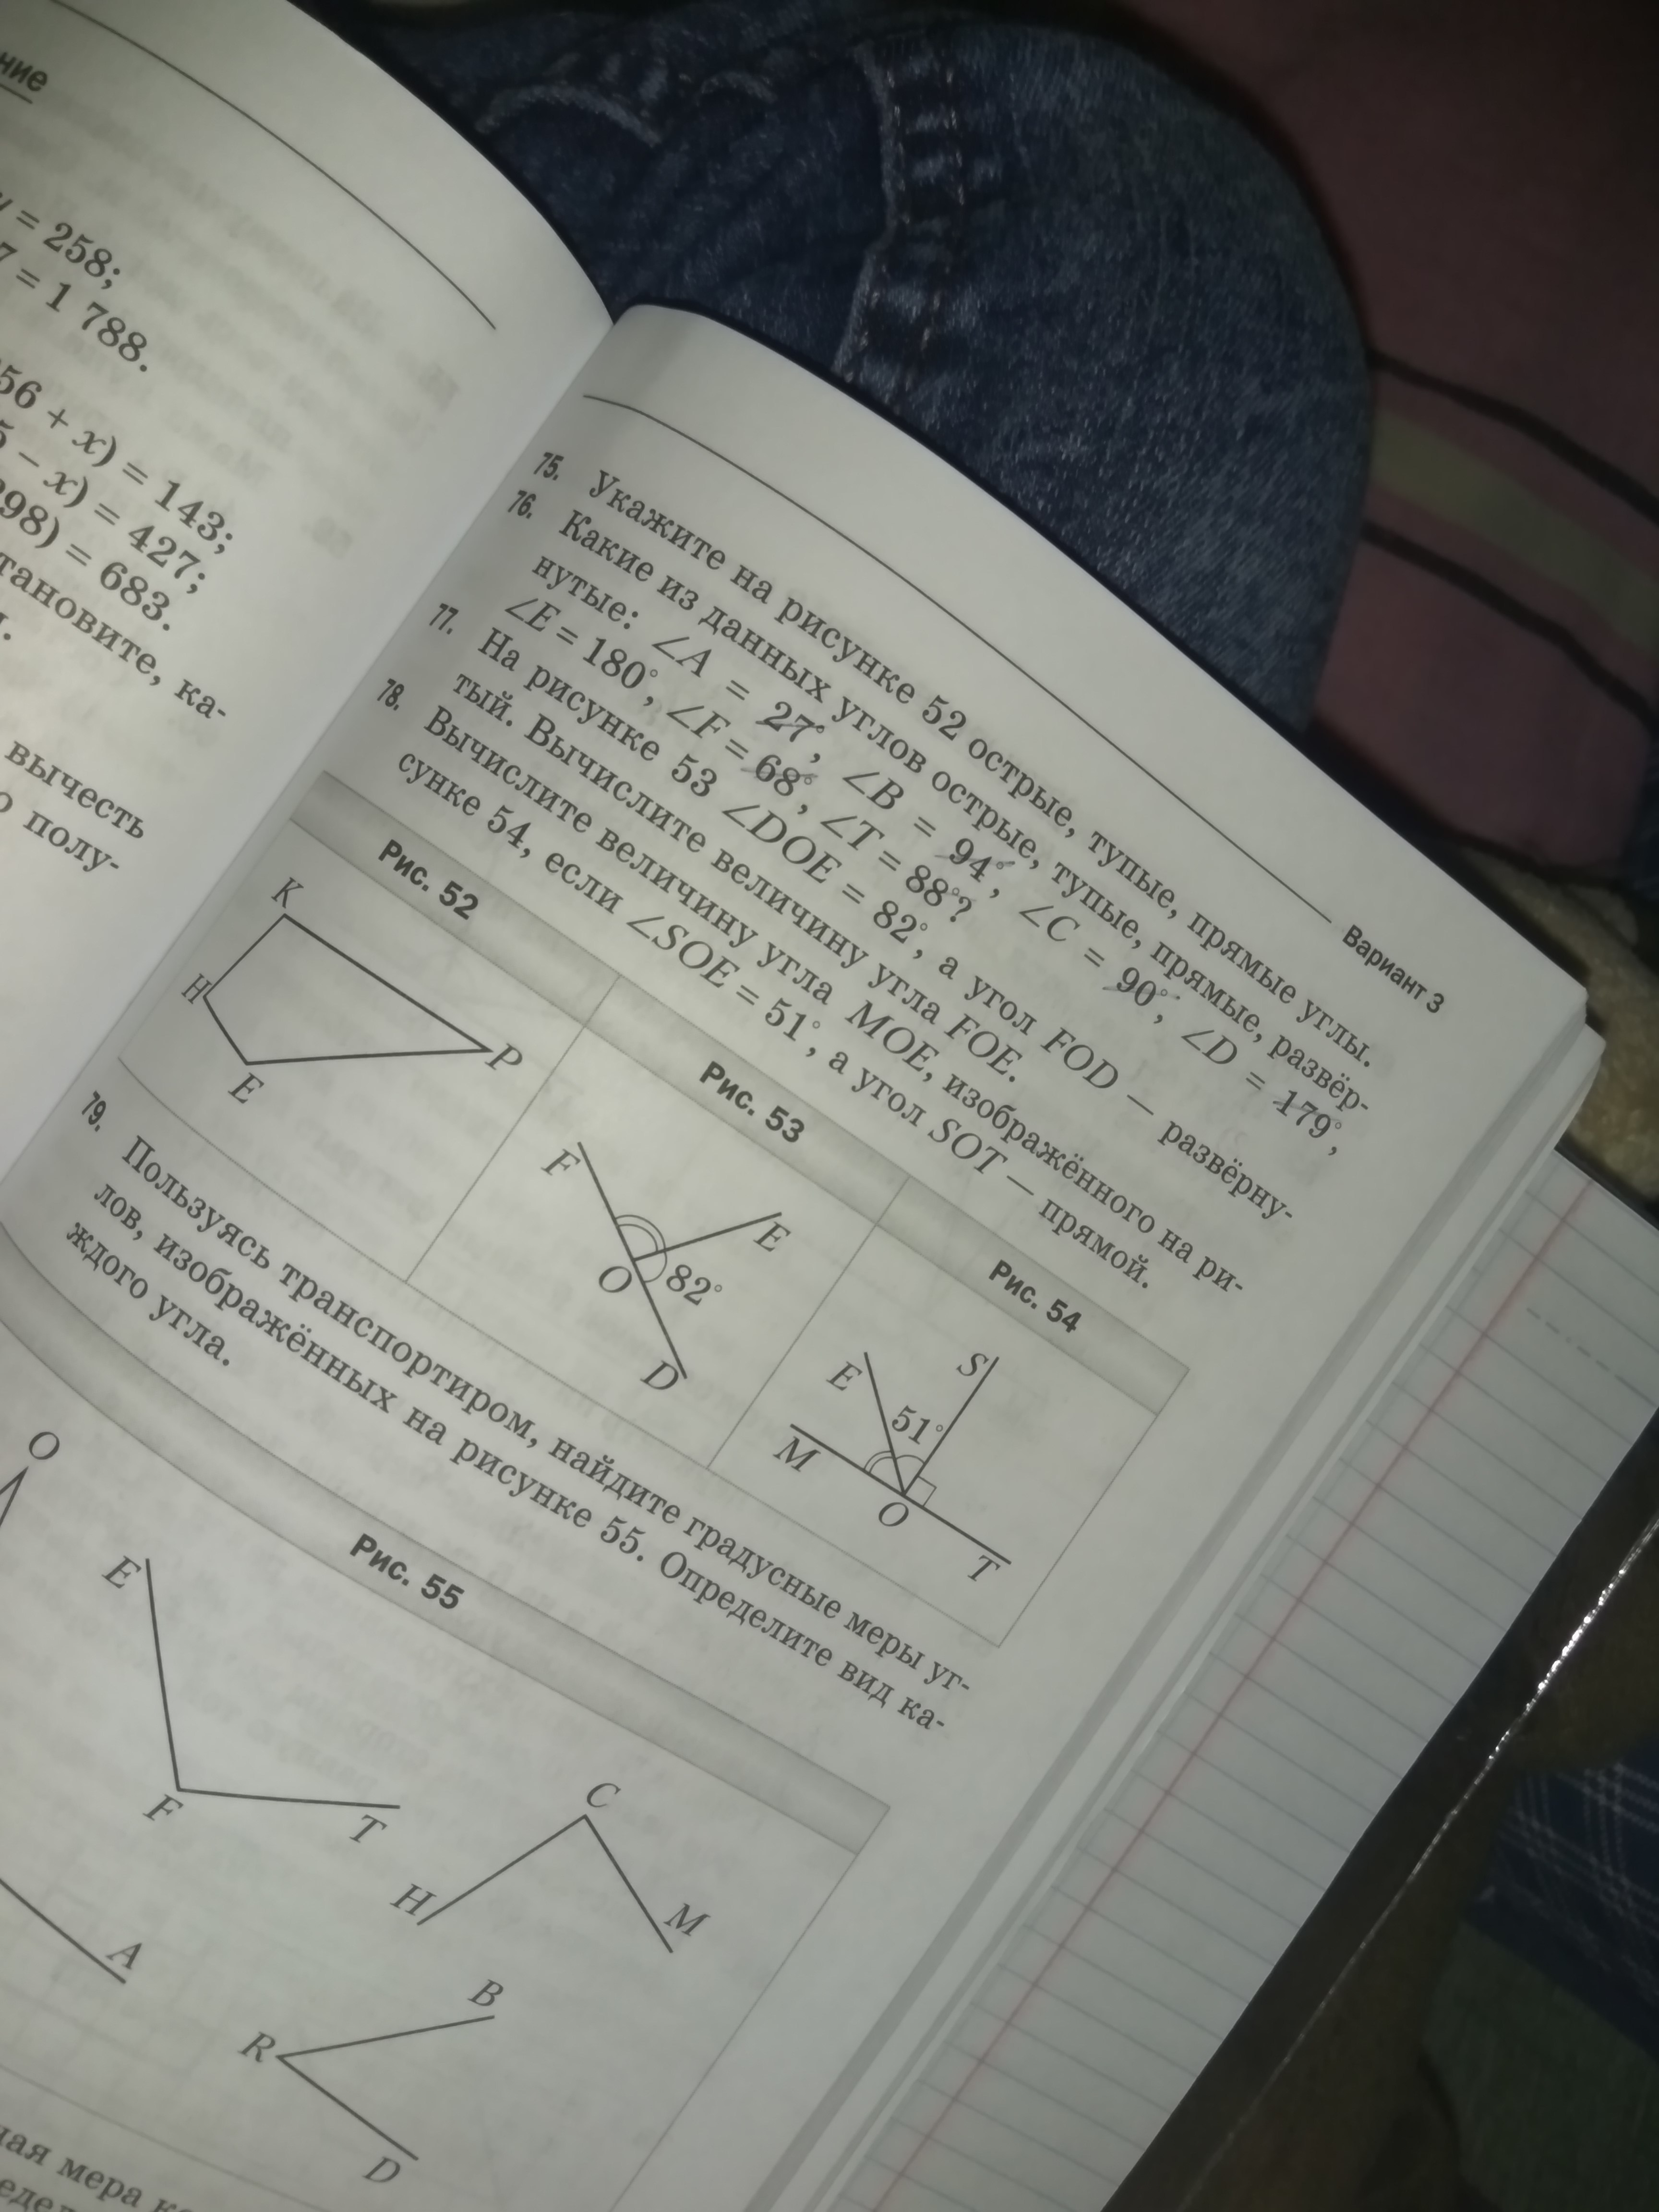 ние
= 258;
7 = 1 788.
56 + x) = 143;
– x) = 427;
98) = 683.
тановите, ка-
вычесть
полу-
Вариант 3
75. Укажите на рисунке 52 острые, тупые, прямые углы.
76. Какие из данных углов острые, тупые, прямые, развёр-
нутые: ∠A = 27°, ∠B = 94°, ∠C = 90°, ∠D = 179°,
∠E = 180°, ∠F = 68°, ∠T = 88°?
77. На рисунке 53 ∠DOE = 82°, а угол FOD — развёрну-
тый. Вычислите величину угла FOE.
78. Вычислите величину угла MOE, изображённого на ри-
сунке 54, если ∠SOE = 51°, а угол SOT — прямой.
Рис. 52
K
H
E
P
Рис. 53
F
E
O
82°
D
Рис. 54
E
S
51°
M
O
T
79. Пользуясь транспортиром, найдите градусные меры уг-
лов, изображённых на рисунке 55. Определите вид ка-
ждого угла.
Рис. 55
O
E
F
T
C
H
M
A
B
R
D
мера